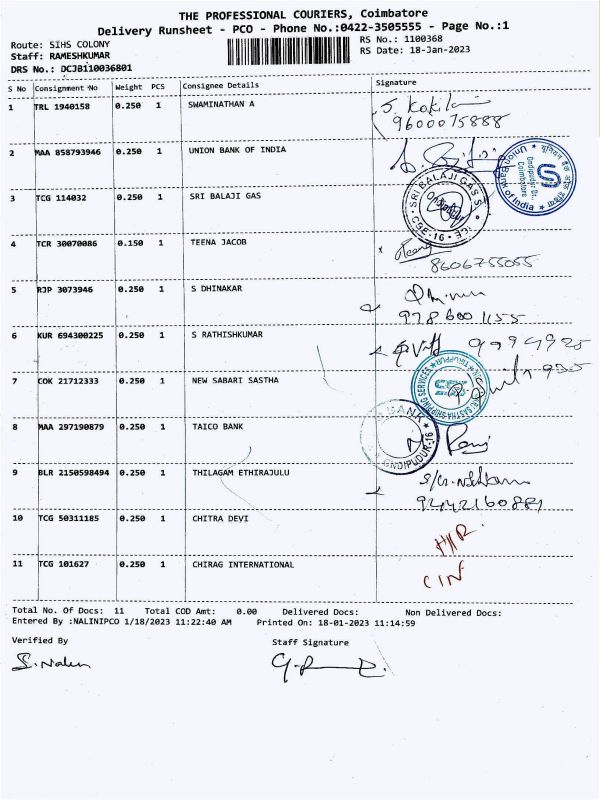 THE PROFESSIONAL COURIERS, Coimbatore
Delivery Runsheet - PCO - Phone No.:0422-3505555 - Page No.:1
Route: SIHS COLONY RS No.: 1100368
Staff: RAMESHKUMAR RS Date: 18-Jan-2023
DRS No.: DCJB110036801
S No Consignment No Weight PCS Consignee Details Signature
1 TRL 1940158 0.250 1 SWAMINATHAN A
9600075888
2 MAA 858793946 0.250 1 UNION BANK OF INDIA
Union Bank of India Coimbatore
3 TCG 114032 0.250 1 SRI BALAJI GAS
SRI BALAJI GAS
4 TCR 30070086 0.150 1 TEENA JACOB
x Teena
8606755055
5 RJP 3073946 0.250 1 S DHINAKAR
6 KUR 694300225 0.250 1 S RATHISHKUMAR
7 COK 21712333 0.250 1 NEW SABARI SASTHA
SASTHA SHIPPING SERVICES TIRUPPUR
8 MAA 297190879 0.250 1 TAICO BANK
BANK ONDIPUDUR-16
9 BLR 2150598494 0.250 1 THILAGAM ETHIRAJULU
10 TCG 50311185 0.250 1 CHITRA DEVI
11 TCG 101627 0.250 1 CHIRAG INTERNATIONAL
CIN
Total No. Of Docs: 11 Total COD Amt: 0.00 Delivered Docs: Non Delivered Docs:
Entered By :NALINIPCO 1/18/2023 11:22:40 AM Printed On: 18-01-2023 11:14:59
Verified By Staff Signature
S. Nalini